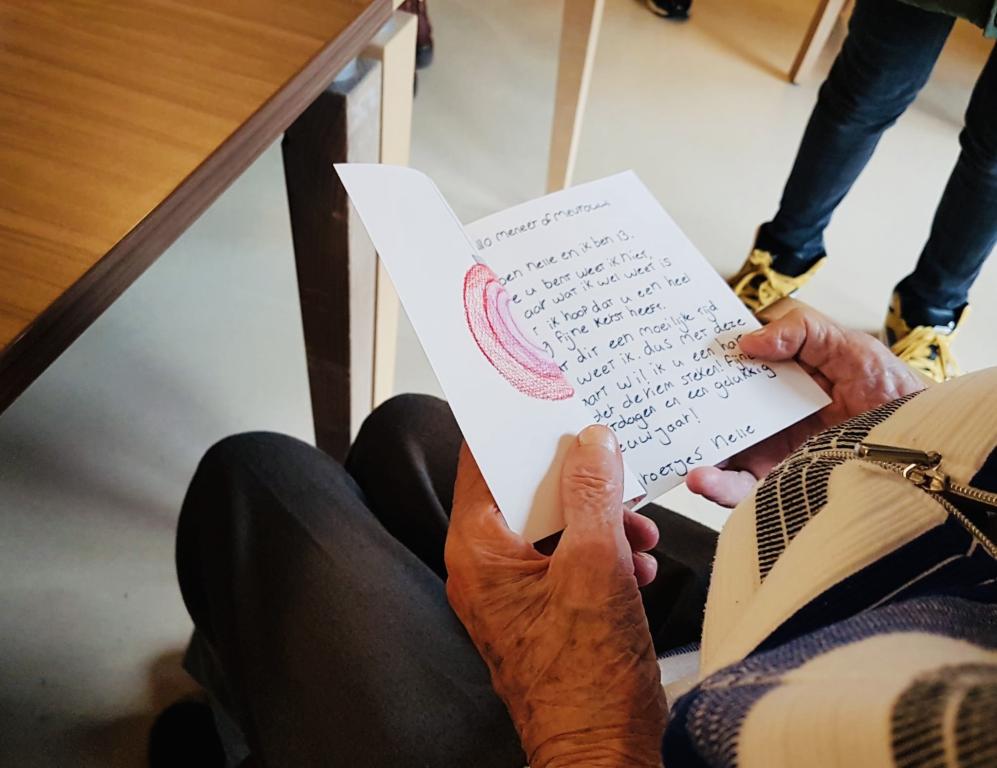 llo Meneer of Mevrouw
ben Nelle en ik ben 13.
e u bent weet ik niet,
aar wat ik wel weet is
ik hoop dat u een heel
fijne kerst heeft.
dit een moeilijke tijd
weet ik. dus met deze
aart wil ik u een har
der de riem steken! Fijne
rstdagen en een gelukkig
euwjaar!
roetjes Nelle